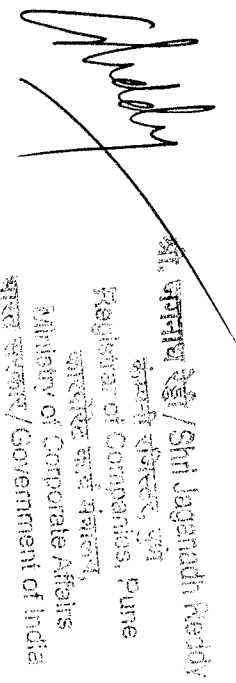 श्री. जगन्नाध रेड्डी/Shri Jaganadh Reddy
कंपनी रजिस्ट्रार, पुणे
Registrar of Companies, Pune
कारपोरेट कार्य मंत्रालय,
Ministry of Corporate Affairs
भारत सरकार/Government of India